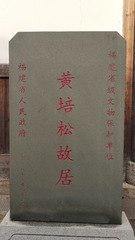 福建省级文物保护单位
黄培松故居
福建省人民政府